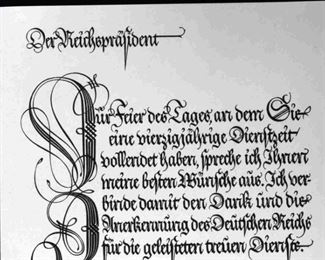 Der Reichspräsident
Zur Feier des Tages, an dem Sie
eine vierzigjährige Dienstzeit
vollendet haben, spreche ich Ihnen
meine besten Wünsche aus. Ich ver-
binde damit den Dank und die
Anerkennung des Deutschen Reichs
für die geleisteten treuen Dienste.